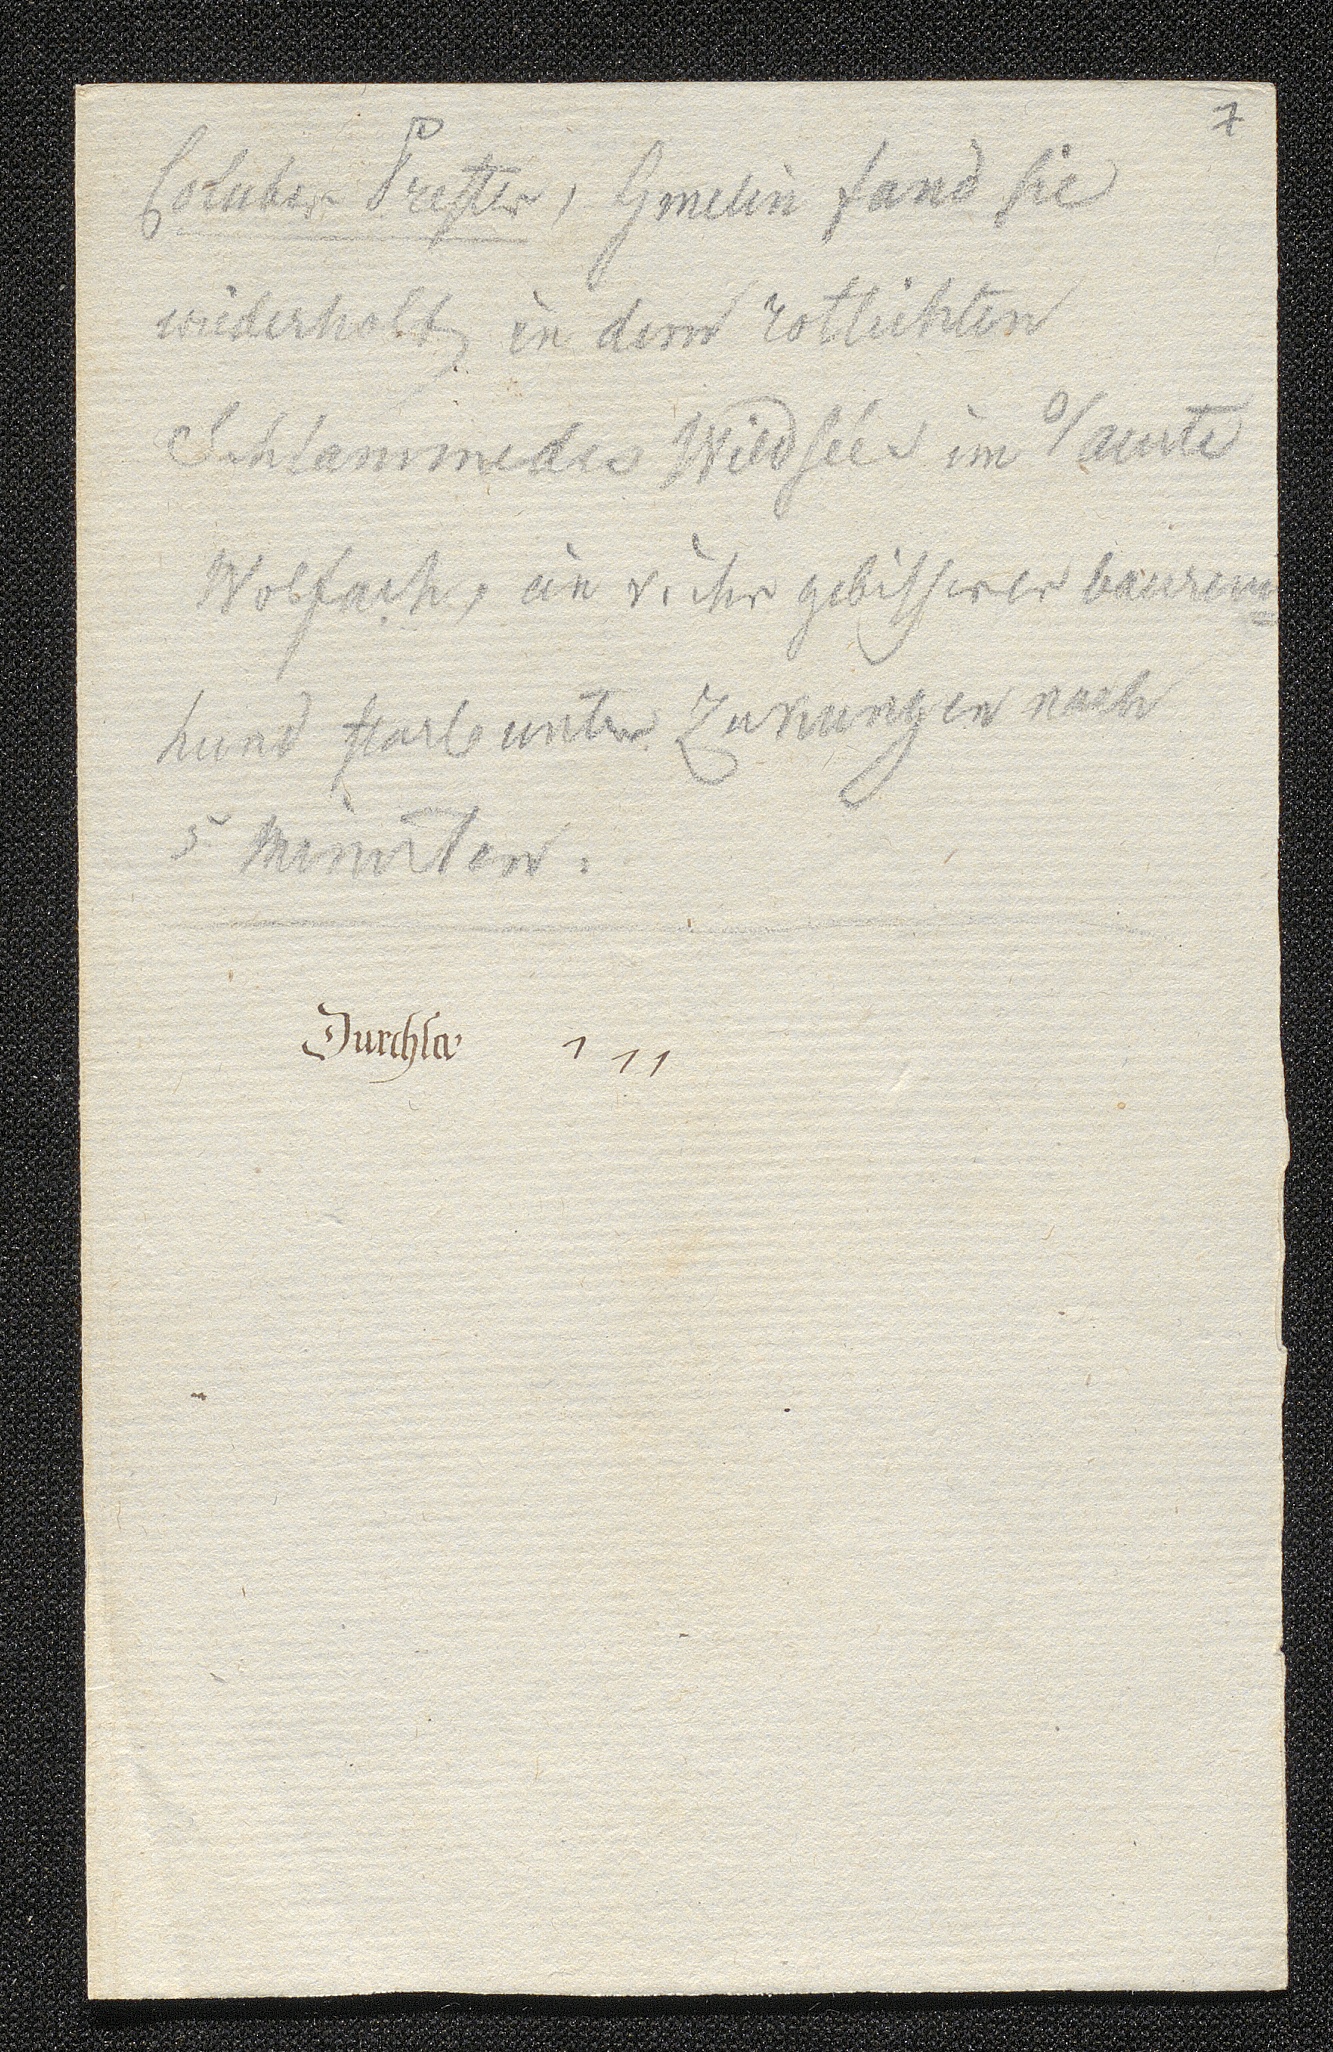 7
Coluber Prester, Gmelin fand sie
wiederholt, in dem rotlichten
Schlamme des Wildsees im
Wolfach, ein v. ihr gebissener bauren=
hund starb unter Zukungen nach
5 Minuten.
Durchla 1 11